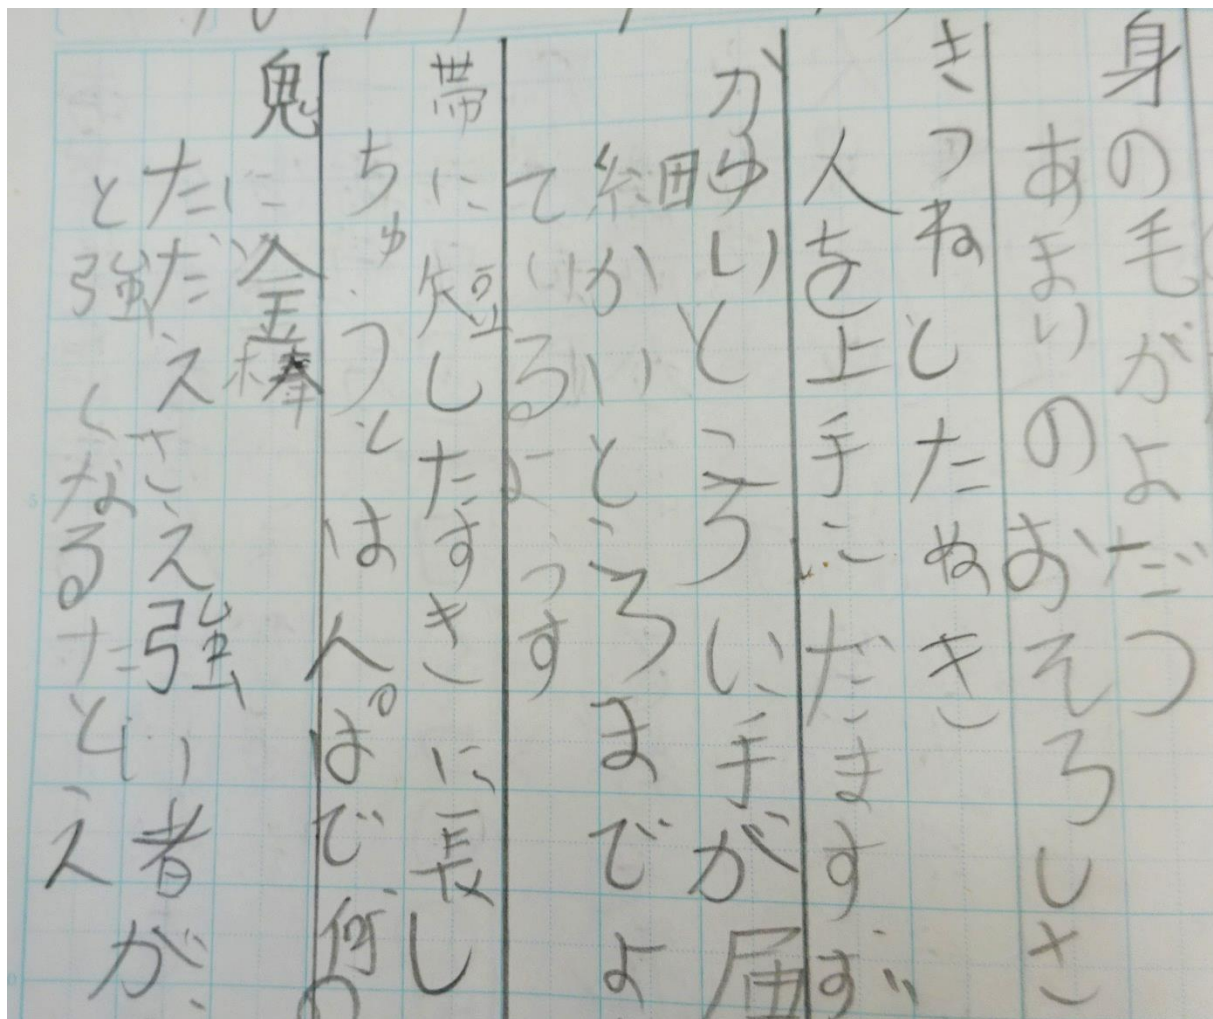 身の毛がよだつ
あまりのおそろしさ
きつねとたぬき
人を上手にだますず
かゆいところい手が届
細かいところまでよ
ているようす
帯に短したすきに長し
ちゅうとはんぱで何の
鬼に金棒
ただえさえ強い者が、
と強くなるたとえ